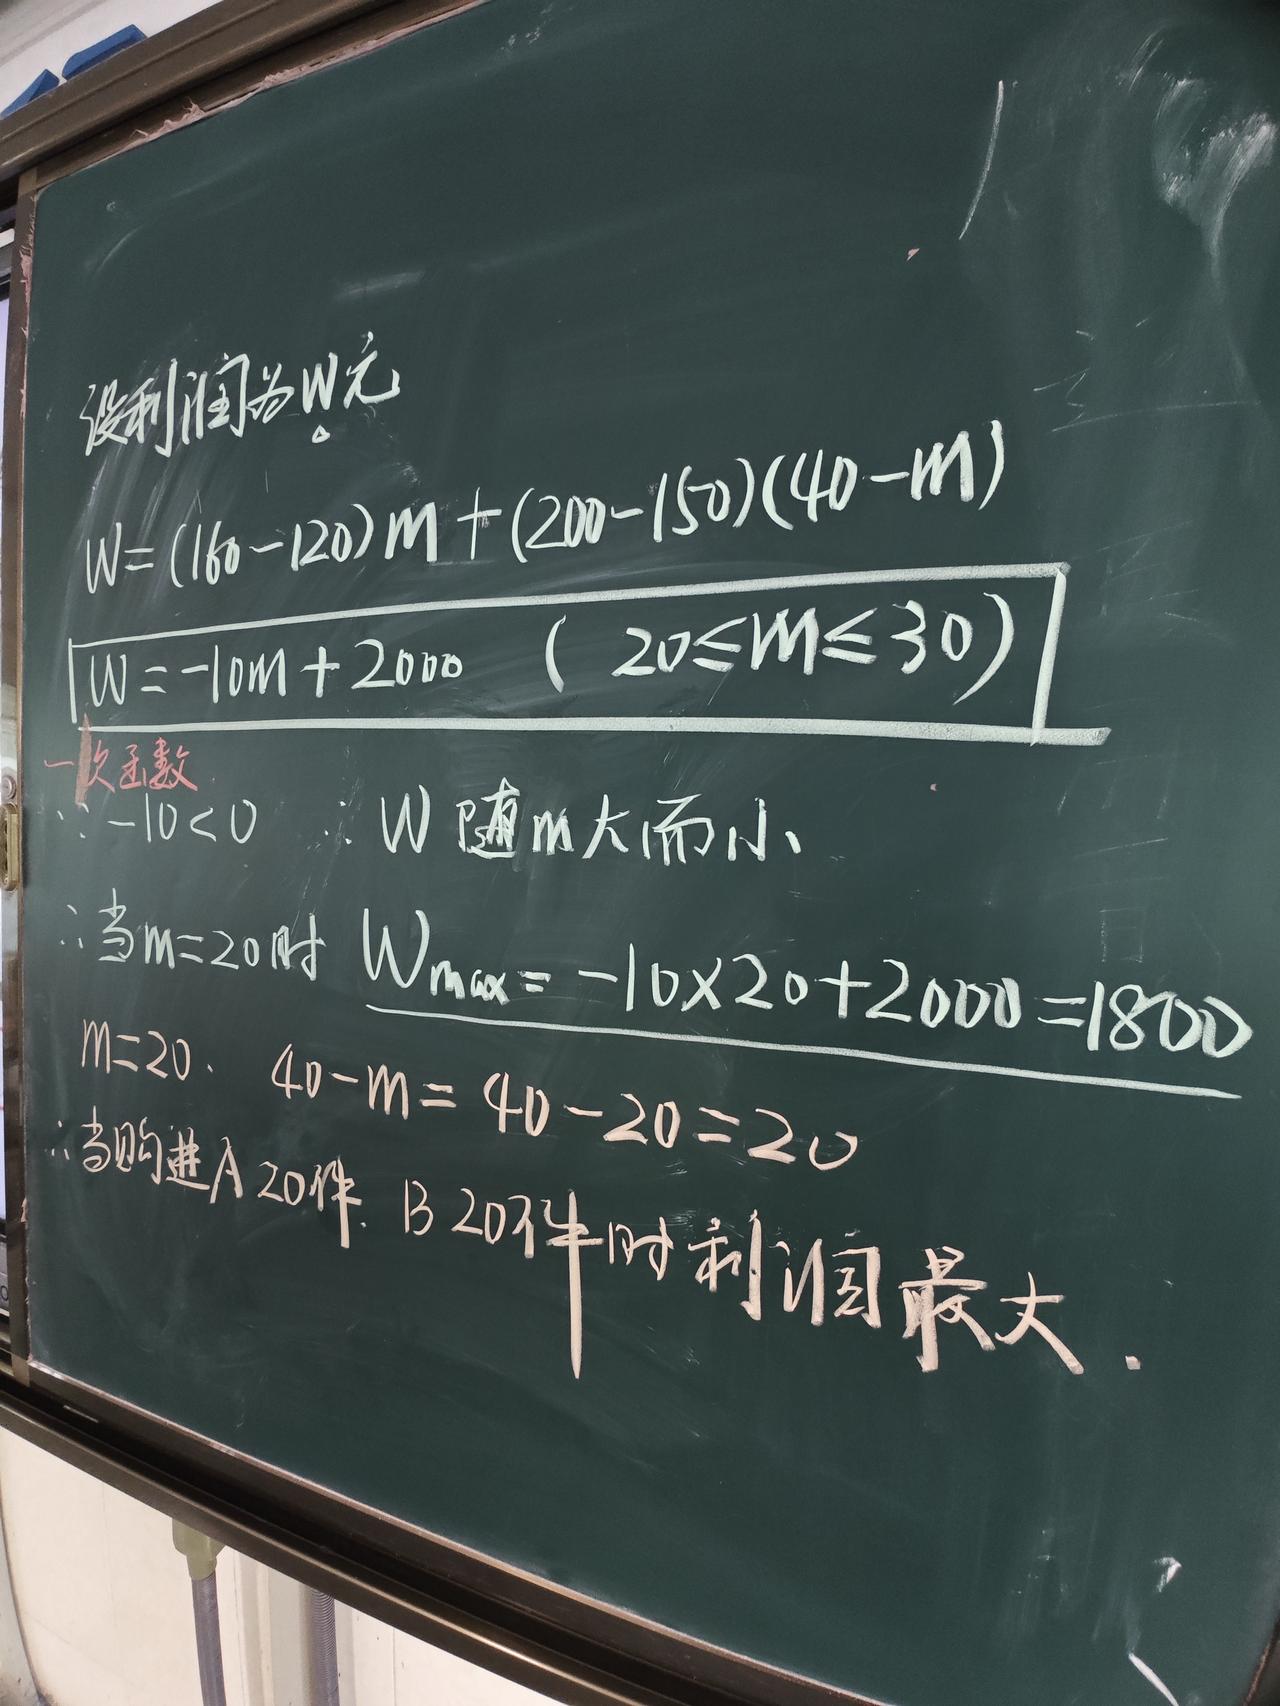 设利润为W元
W=(160-120)m+(200-150)(40-m)
W=-10m+2000 (20≤m≤30)
一次函数
∵-10<0 ∴W随m大而小、
∴当m=20时 Wmax=-10×20+2000=1800
m=20. 40-m=40-20=20
∴当购进A20件. B20件时利润最大.